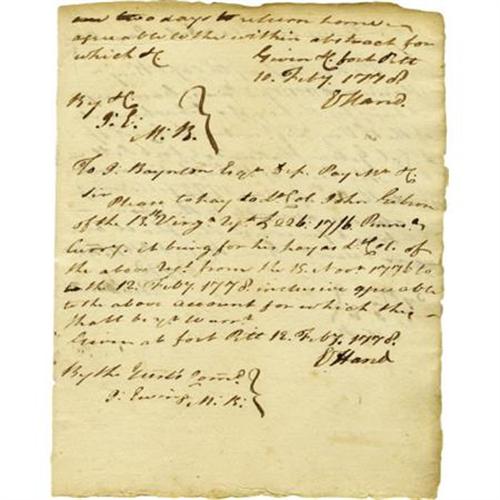 two days to return home
agreeable to the within abstract for
which &c
Given &c fort Pitt
10. Feby. 1778
E Hand.
By &c
J: E:
M. B.
To J: Boynton Esqr. Dep. Pay Mr. &c
Sir Please to pay to Lt Col. John Gibson
of the 13th Virga. Regt. 226: 17/6 Penns.
Curry. it being for his pay as Lt Col. of
the above Regt. from the 15. Novr 1776 to
the 12. Feby. 1778. inclusive agreeable
to the above account for which this
shall be yr. Warrt.
Given at fort Pitt 12. Feby. 1778.
E Hand
By the Genls Comd.
J: Ewing M: B: